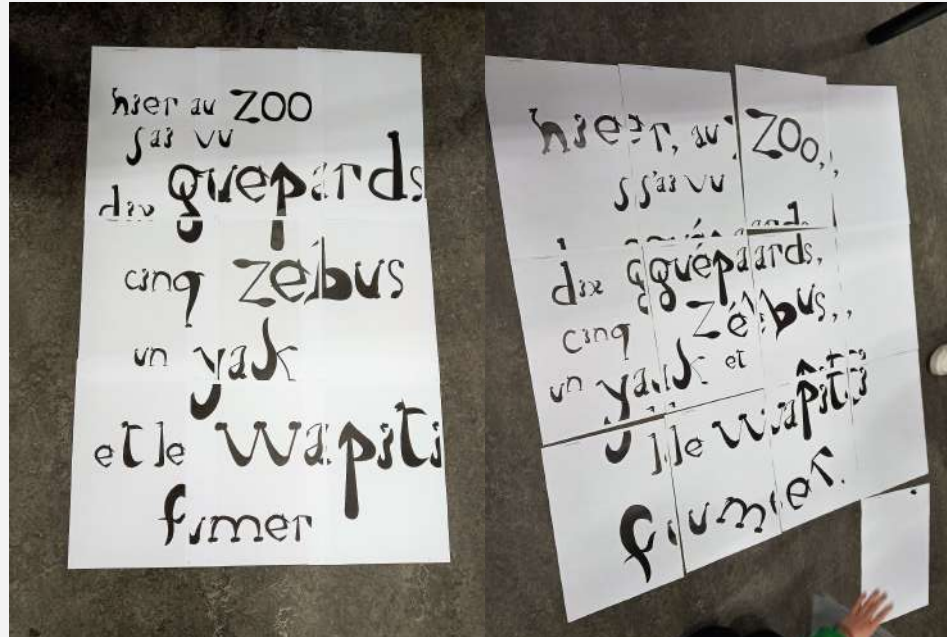 hier au ZOO
j'ai vu
dix guépards
cinq zébus
un yak
et le wapiti
fumer
hier, au ZOO,
j'ai vu
dix guépards,
cinq zébus,
un yak et
le wapiti
fumer.